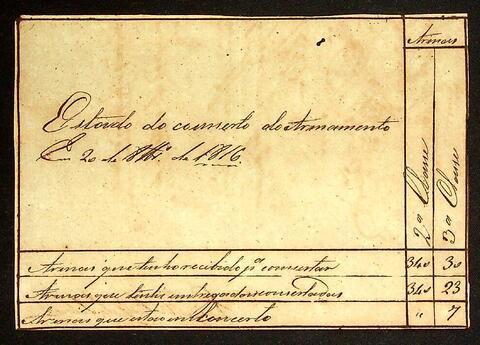 Armas
2ª Classe
3ª Classe
Estado do conserto do Armamento
Em 20 de de 1816.
Armas que tenho recibido pª consertar 340 30
Armas que tenho entregados consertadas 340 23
Armas que estão em Concerto " 7